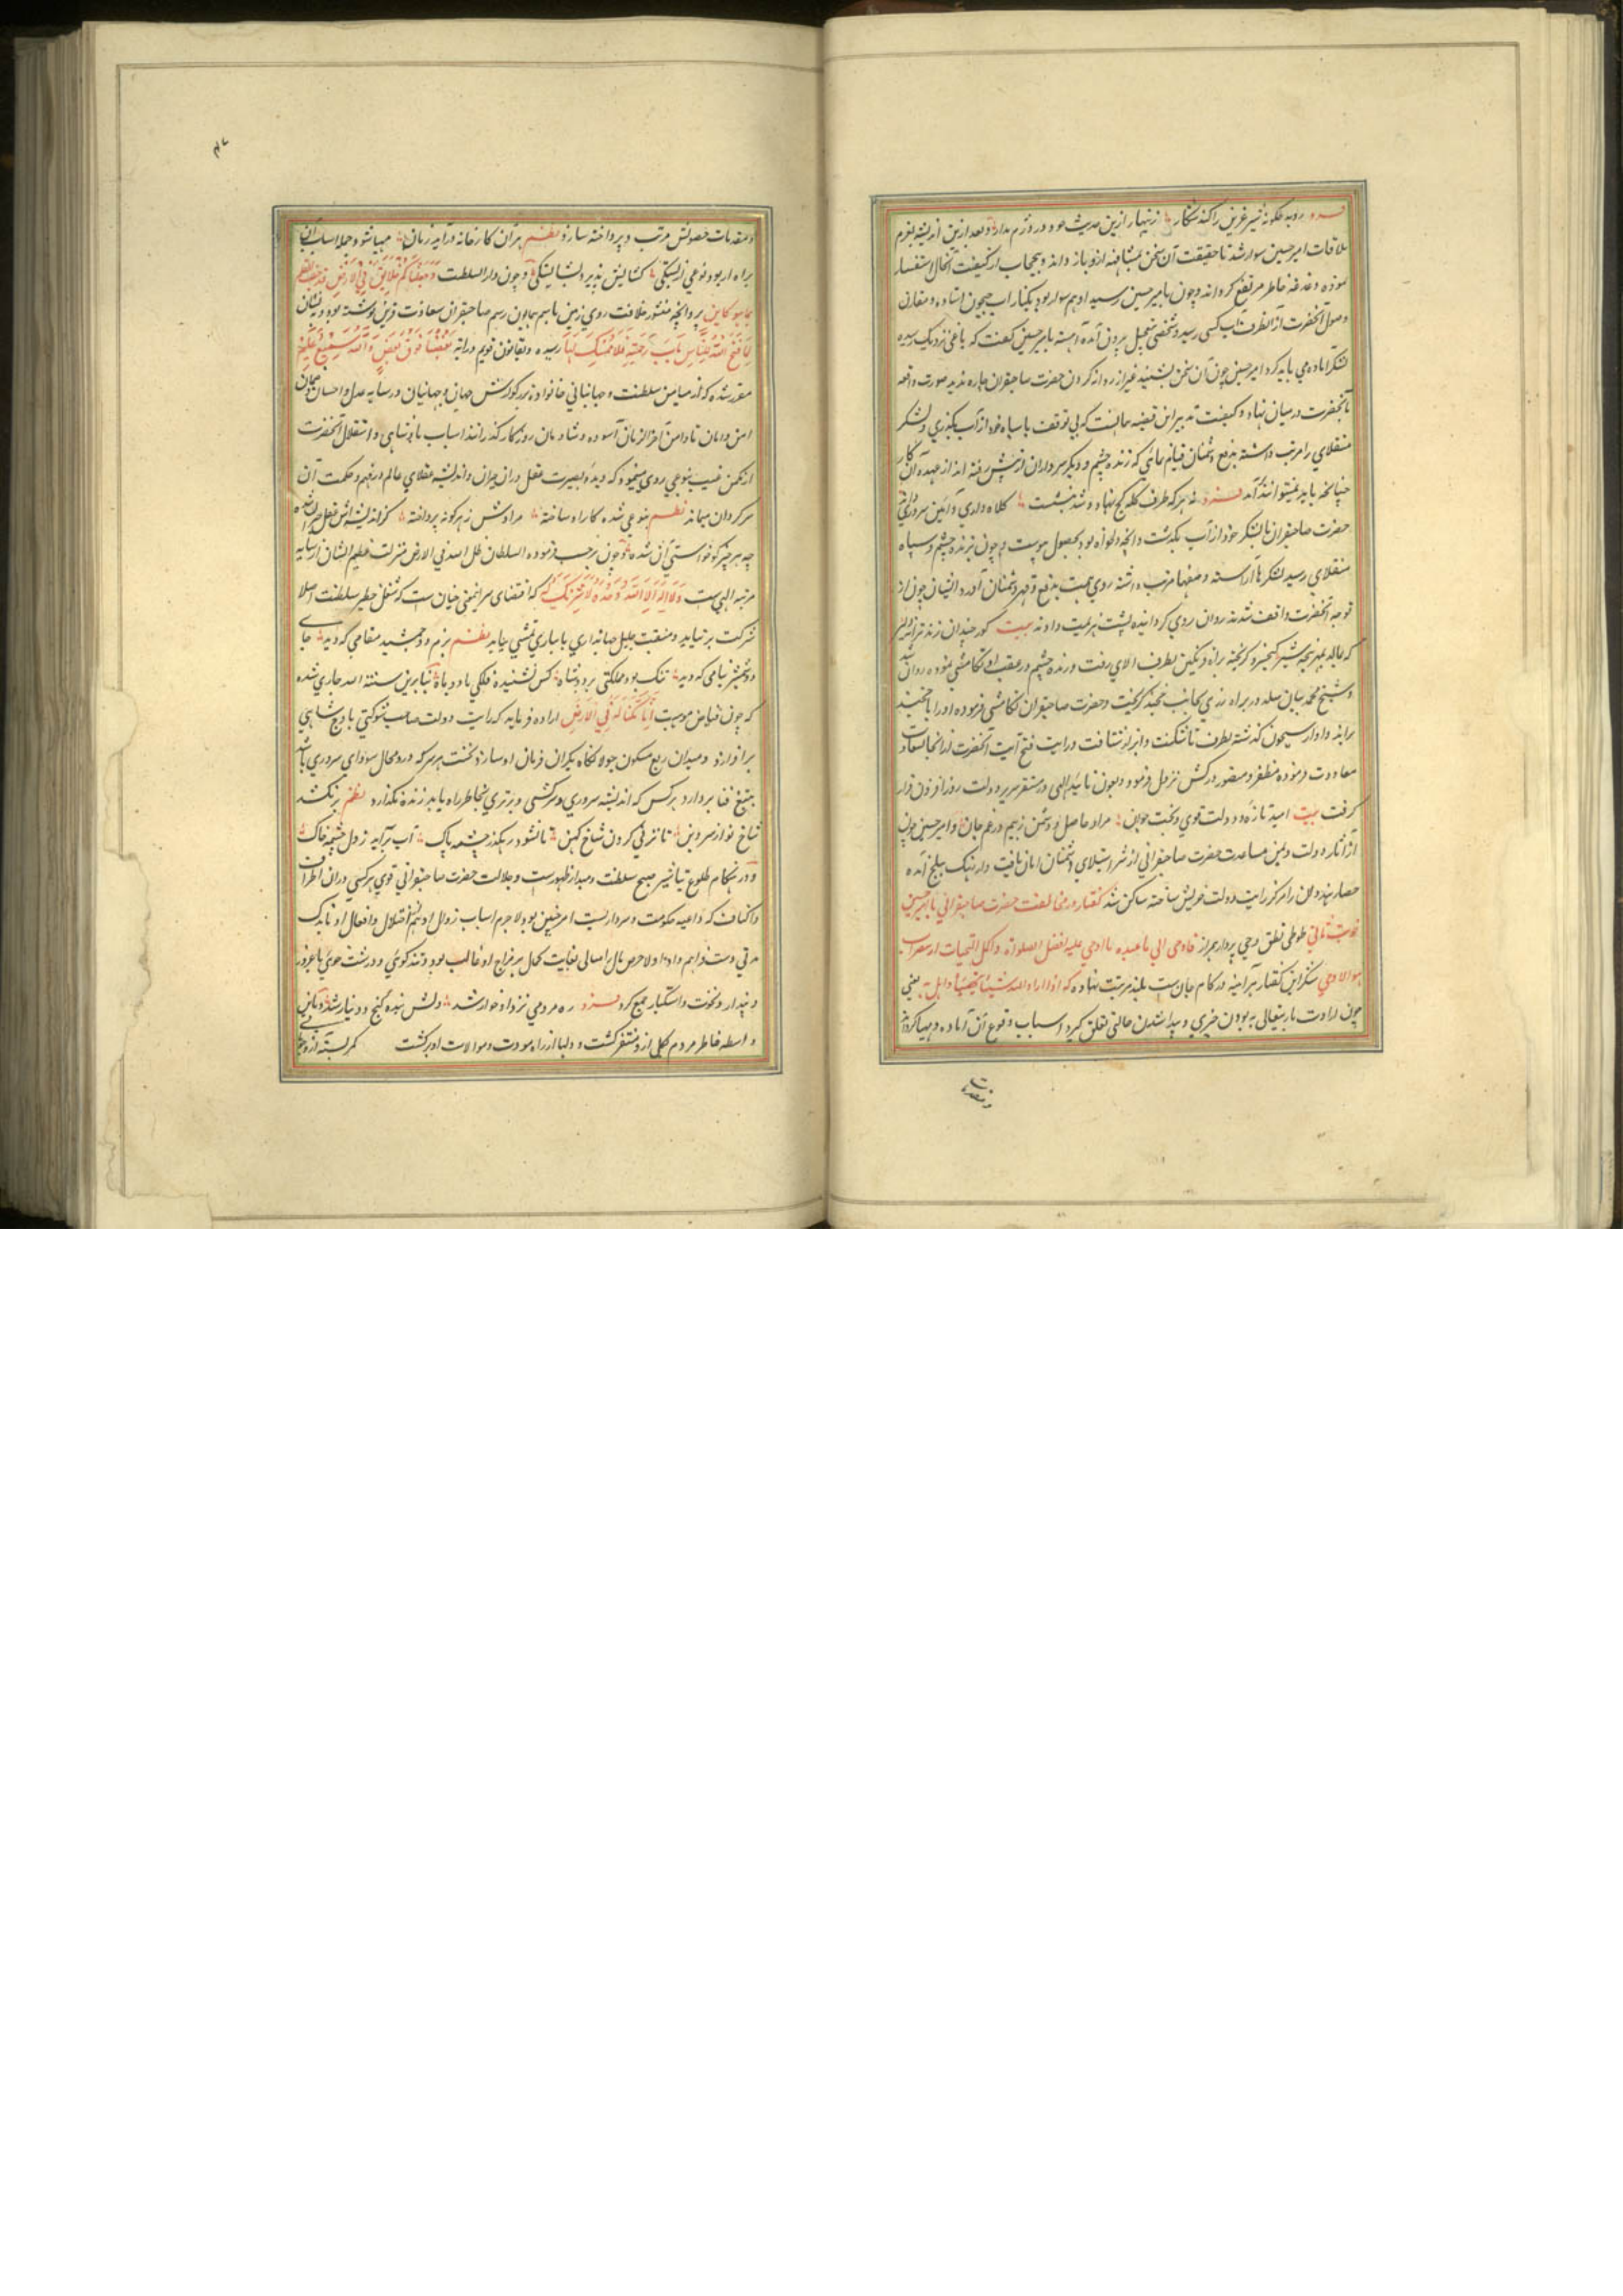 فرد روبه چگونه شیر عرین را کند شکار زنهار ازین حدیث و بعد ازین اندیشه بعزم
ملاقات امیر حسین سوار شد تا حقیقت آن سخن بمشافهه ازو باز داند و بحجاب از کیفیت آنحال استفسار
نموده دغدغه خاطر مرتفع گرداند و چون بامیر حسین رسید او هم سوار بود بکنار آب جیحون استاده و مقارن
وصول آنحضرت از آنطرف آب کسی رسید و شخصی بتعجیل برون آمده آهسته بامیر حسین گفت که یاغی نزدیک رسیده
لشکر آماده می باید کرد امیر حسین چون آن سخن بشنید غیر از روانه کردن حضرت صاحبقران چاره ندید صورت واقعه
با آنحضرت در میان نهاد و گفت تدبیر این قضیه آنست که بی توقف با سپاه خود از آب بگذری و لشکر
منقلای را مرتب داشته بدفع دشمنان قیام نمائی که زنده چشم و دیگر سرداران از پیش رفته اند از عهده آن کار
چنانچه باید نمیتوانند آمد فرد نه هر که طرف کله کج نهاد و تند نشست کلاه داری و آئین سروری داند
حضرت صاحبقران با لشکر خود از آب بگذشت و آنچه دلخواه بود بحصول پیوست و چون بزنده چشم و سپاه
منقلای رسید لشکرها آراسته و صفها مرتب داشته روی همت بدفع و قهر دشمنان آورد ایشان چون از
توجه آنحضرت واقف شدند روان روی گردانیده پشت بهزیمت دادند بیت گور چندان زند ترانه دلیر
که نماند بهر پنجه شیر کیخسرو گریخته براه دیگین بطرف الای رفت و زنده چشم در عقب او تکامشی نموده روان شد
و شیخ محمد بیان سلدوز براه بجانب خجند گریخت و حضرت صاحبقران تکامشی فرموده او را با خجند
براند و او از سیحون گذشته بطرف تاشکنت و اترار شتافت و رایت فتح آیت آنحضرت از آنجا بسعادت
معاودت فرموده مظفر و منصور در کش نزول فرمود و بعون تائید الهی در مستقر سریر دولت روز افزون قرار
گرفت بیت امید تازه و دولت قوی و بخت جوان مراد حاصل و دشمن ز بیم در غم جان و امیر حسین چون
از آثار دولت و یمن مساعدت حضرت صاحبقرانی از شر استیلای دشمنان امان یافت و از بلخ آمده
حصار هندوان را مرکز رایت دولت خویش ساخته ساکن شد گفتار در مخالفت حضرت صاحبقرانی با امیر حسین
نوبت ثانی طوطی نطق وحی پرداز همراز فاوحی الی ما عبده ما اوحی علیه افضل الصلوات و اکمل التحیات از
هو الا وحی شکر این گفتار هر آینه در کام جان نهاده که اذا اراد الله شیئا هیأ اسبابه یعنی
چون ارادت باریتعالی به بودن چیزی و پیدا شدن حالتی تعلق گیرد اسباب وقوع آن آماده و مهیا گرداند
و مقدمات
و مقدمات حصولش مرتب و پرداخته سازد نظم بر آن کارخانه در آید زمان مهیا شود جمله اسباب آن
کشایش پذیرد و چون دار السلطنت وجعلناکم خلائف فی الارض
بما هو کاین پروانچه منشور خلافت روی زمین باسم همایون رسم صاحبقران سعادت قرین نوشته بود و به نشان
ما یفتح الله للناس من رحمة فلا ممسک لها رسیده و بقانون قویم بعضنا فوق بعض والله سمیع علیم
مقرر شده که از میامن سلطنت و جهانبانی خانواده بزرگوارش جهان و جهانیان در سایه عدل و احسان و
امن و امان تا دامن آخر الزمان آسوده و شادمان روزگار گذرانند اسباب پادشاهی و استقلال آنحضرت
از مکمن غیب بنوعی روی مینمود که دیده بصیرت عقل در آن حیران و اندیشه عقلای عالم در فهم و حکمت آن
سرگردان میماند نظم بنوعی شده کار او ساخته مرادش ز هر گونه پرداخته کز اندیشه اش عقل حیران شده
چه هر چیز کو خواستی آن شده و چون بر حسب فرموده السلطان ظل الله فی الارض منزلت عظیم الشان از سایه
مرتبه الهی است و لا اله الا الله وحده لا شریک له که اقتضای چنان است که شغل خطیر سلطنت اصلا
شرکت بر نتابد و منقبت جلیل جهانداری با نباری تمشی نیابد نظم بزم دو جمشید مقامی که دید جای
دو شمشیر نیامی که دید تنگ بود مملکتی بر دو شاه کس نشنیده فلکی با دو ماه بنابرین سنة الله جاری شده
که چون فیاض موهبت انا مکنا له فی الارض اراده فرماید که رایت دولت صاحب شوکتی باوج شاهی
بر افرازد و میدان ربع مسکون جولانگاه یکران فرمان او سازد نخست هر سر که در و مجال سودای سروری باشد
بتیغ فنا بردارد و هر کس که اندیشه سروری و سرکشی و برتری بخاطر راه یابد زنده نگذارد نظم بر نکشد
شاخ نو از سرو بن تا نزنی گردن شاخ کهن تا نشود رهگذر چشمه پاک آب بر آید ز دل چشمه خاک
و در هنگام طلوع تباشیر صبح سلطنت و مبدأ ظهور است و جلالت حضرت صاحبقرانی قوی هر کسی در آن اطراف
و اکناف که داعیه حکومت و سرداریست امیر حسین بود لاجرم اسباب زوال او هم از اختلال و افعال او نابک
مرتی دست فراهم داد اولا حرص مال بغایت کمال بر مزاج او غالب بود و تند گوئی و درشت خوئی با غرور
و پندار و نخوت و استکبار جمع کرد فرد ره مردمی نزد او خوار شد دلش بنده گنج و دینار شد و باین
واسطه خاطر مردم بکلی ازو متنفر گشت و دلها از راه مودت و موالات او برگشت کمر بسته